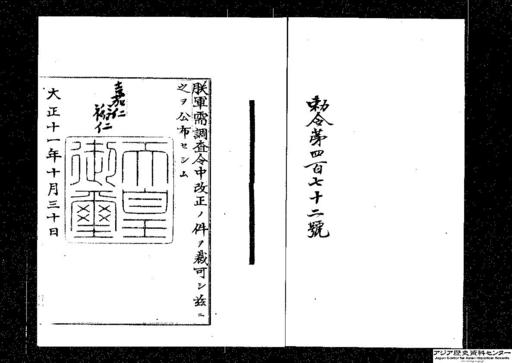 勅令第四百七十二號
朕軍需調査令中改正ノ件ヲ裁可シ茲ニ
之ヲ公布セシム
嘉仁
裕仁
天皇
御璽
大正十一年十月三十日
アジア歴史資料センター
Japan Center for Asian Historical Records